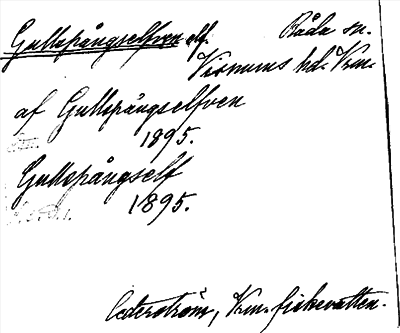 Gullspångselfven elf. Råda sn.
Visnums hd. Vrm.
af Gullspångselfven
1895.
Gullspångself
1895.
Cederström, Vrm. fiskevatten.